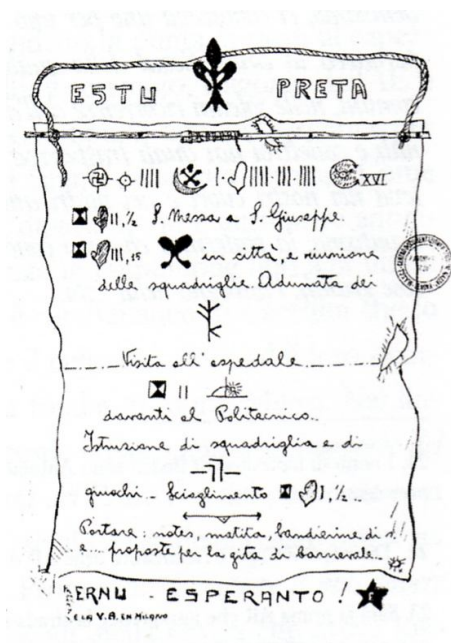 ESTU PRETA
XVI
11,½ S. Messa a S. Giuseppe.
111,15 in città, e riunione
delle squadriglie. Adunata dei
Visita all'ospedale
11
davanti al Politecnico.
Istruzione di squadriglia e di
giuochi - Scioglimento 1,½
Portare: notes, matita, bandierine di
e proposte per la gita di carnevale.
LERNU - ESPERANTO!
E LA V.A. EN MILANO